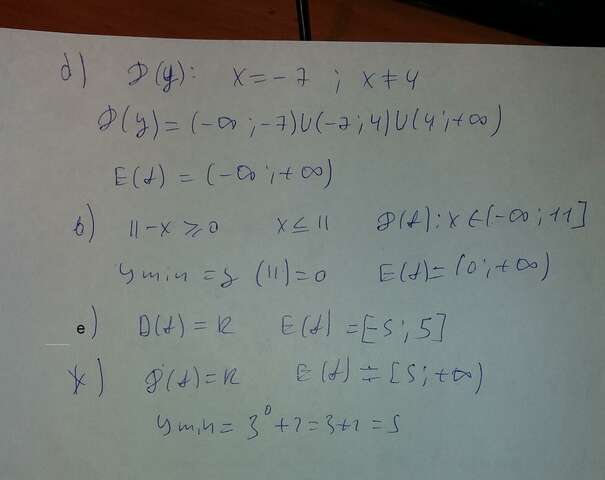 d) D(y): x = -7 ; x ≠ 4
D(y) = (-∞; -7)∪(-7; 4)∪(4; +∞)
E(f) = (-∞; +∞)
b) 11-x ≥ 0 x ≤ 11 D(f): x ∈ (-∞; 11]
y min = y (11) = 0 E(f) = (0; +∞)
e) D(f) = R E(f) = [-5; 5]
D(f) = R E(f) = [5; +∞)
y min = 3⁰ + 2 = 3 + 2 = 5